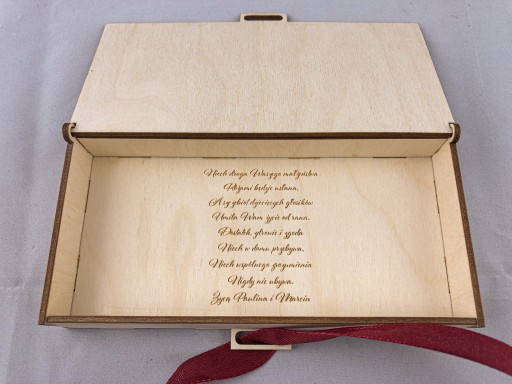 Niech droga Waszego małżeństwa
Różami będzie usłana,
A
Umila Wam życie od rana.
Dostatek, zdrowie i zgoda
Niech w domu przybywa,
Niech wspólnego zrozumienia
Nigdy nie ubywa.
Życzą Paulina i Marcin